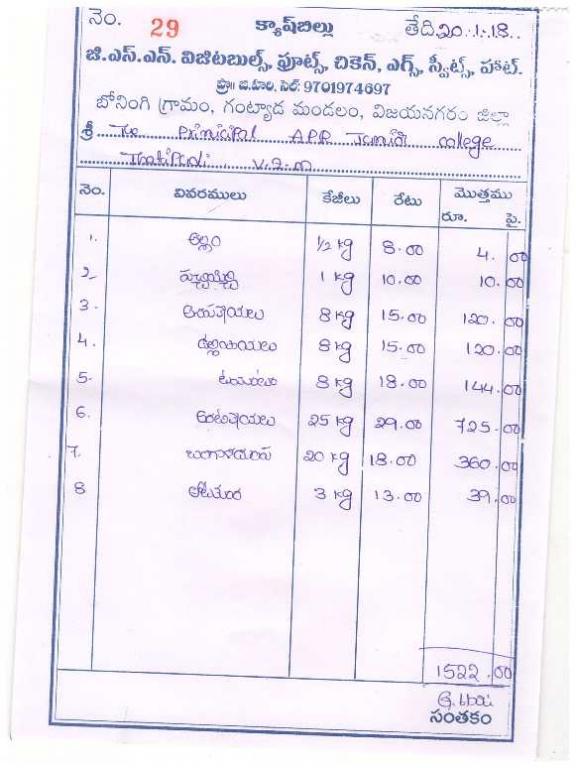 నెం. 29 క్యాష్‌బిల్లు తేది 20.1.18
జి.ఎస్.ఎన్. విజిటబుల్స్, ఫ్రూట్స్, చికెన్, ఎగ్స్, స్వీట్స్, హాట్.
ప్రొ॥ బి.హరి, సెల్: 9701974697
బోనింగి గ్రామం, గంట్యాడ మండలం, విజయనగరం జిల్లా
శ్రీ The Prinicipal APR Junior college
Thatipudi V.Z.M
నెం. వివరములు కేజీలు రేటు మొత్తము
రూ. పై.
1. అల్లం 1/2 kg 8.00 4.00
2 పచ్చిమిర్చి 1 kg 10.00 10.00
3. 8 kg 15.00 120.00
4. ఉల్లిపాయలు 8 kg 15.00 120.00
5. టమోటా 8 kg 18.00 144.00
6. అరటికాయలు 25 kg 29.00 725.00
7. బంగాళదుంప 20 kg 18.00 360.00
8 తోటకూర 3 kg 13.00 39.00
1522.00
సంతకం